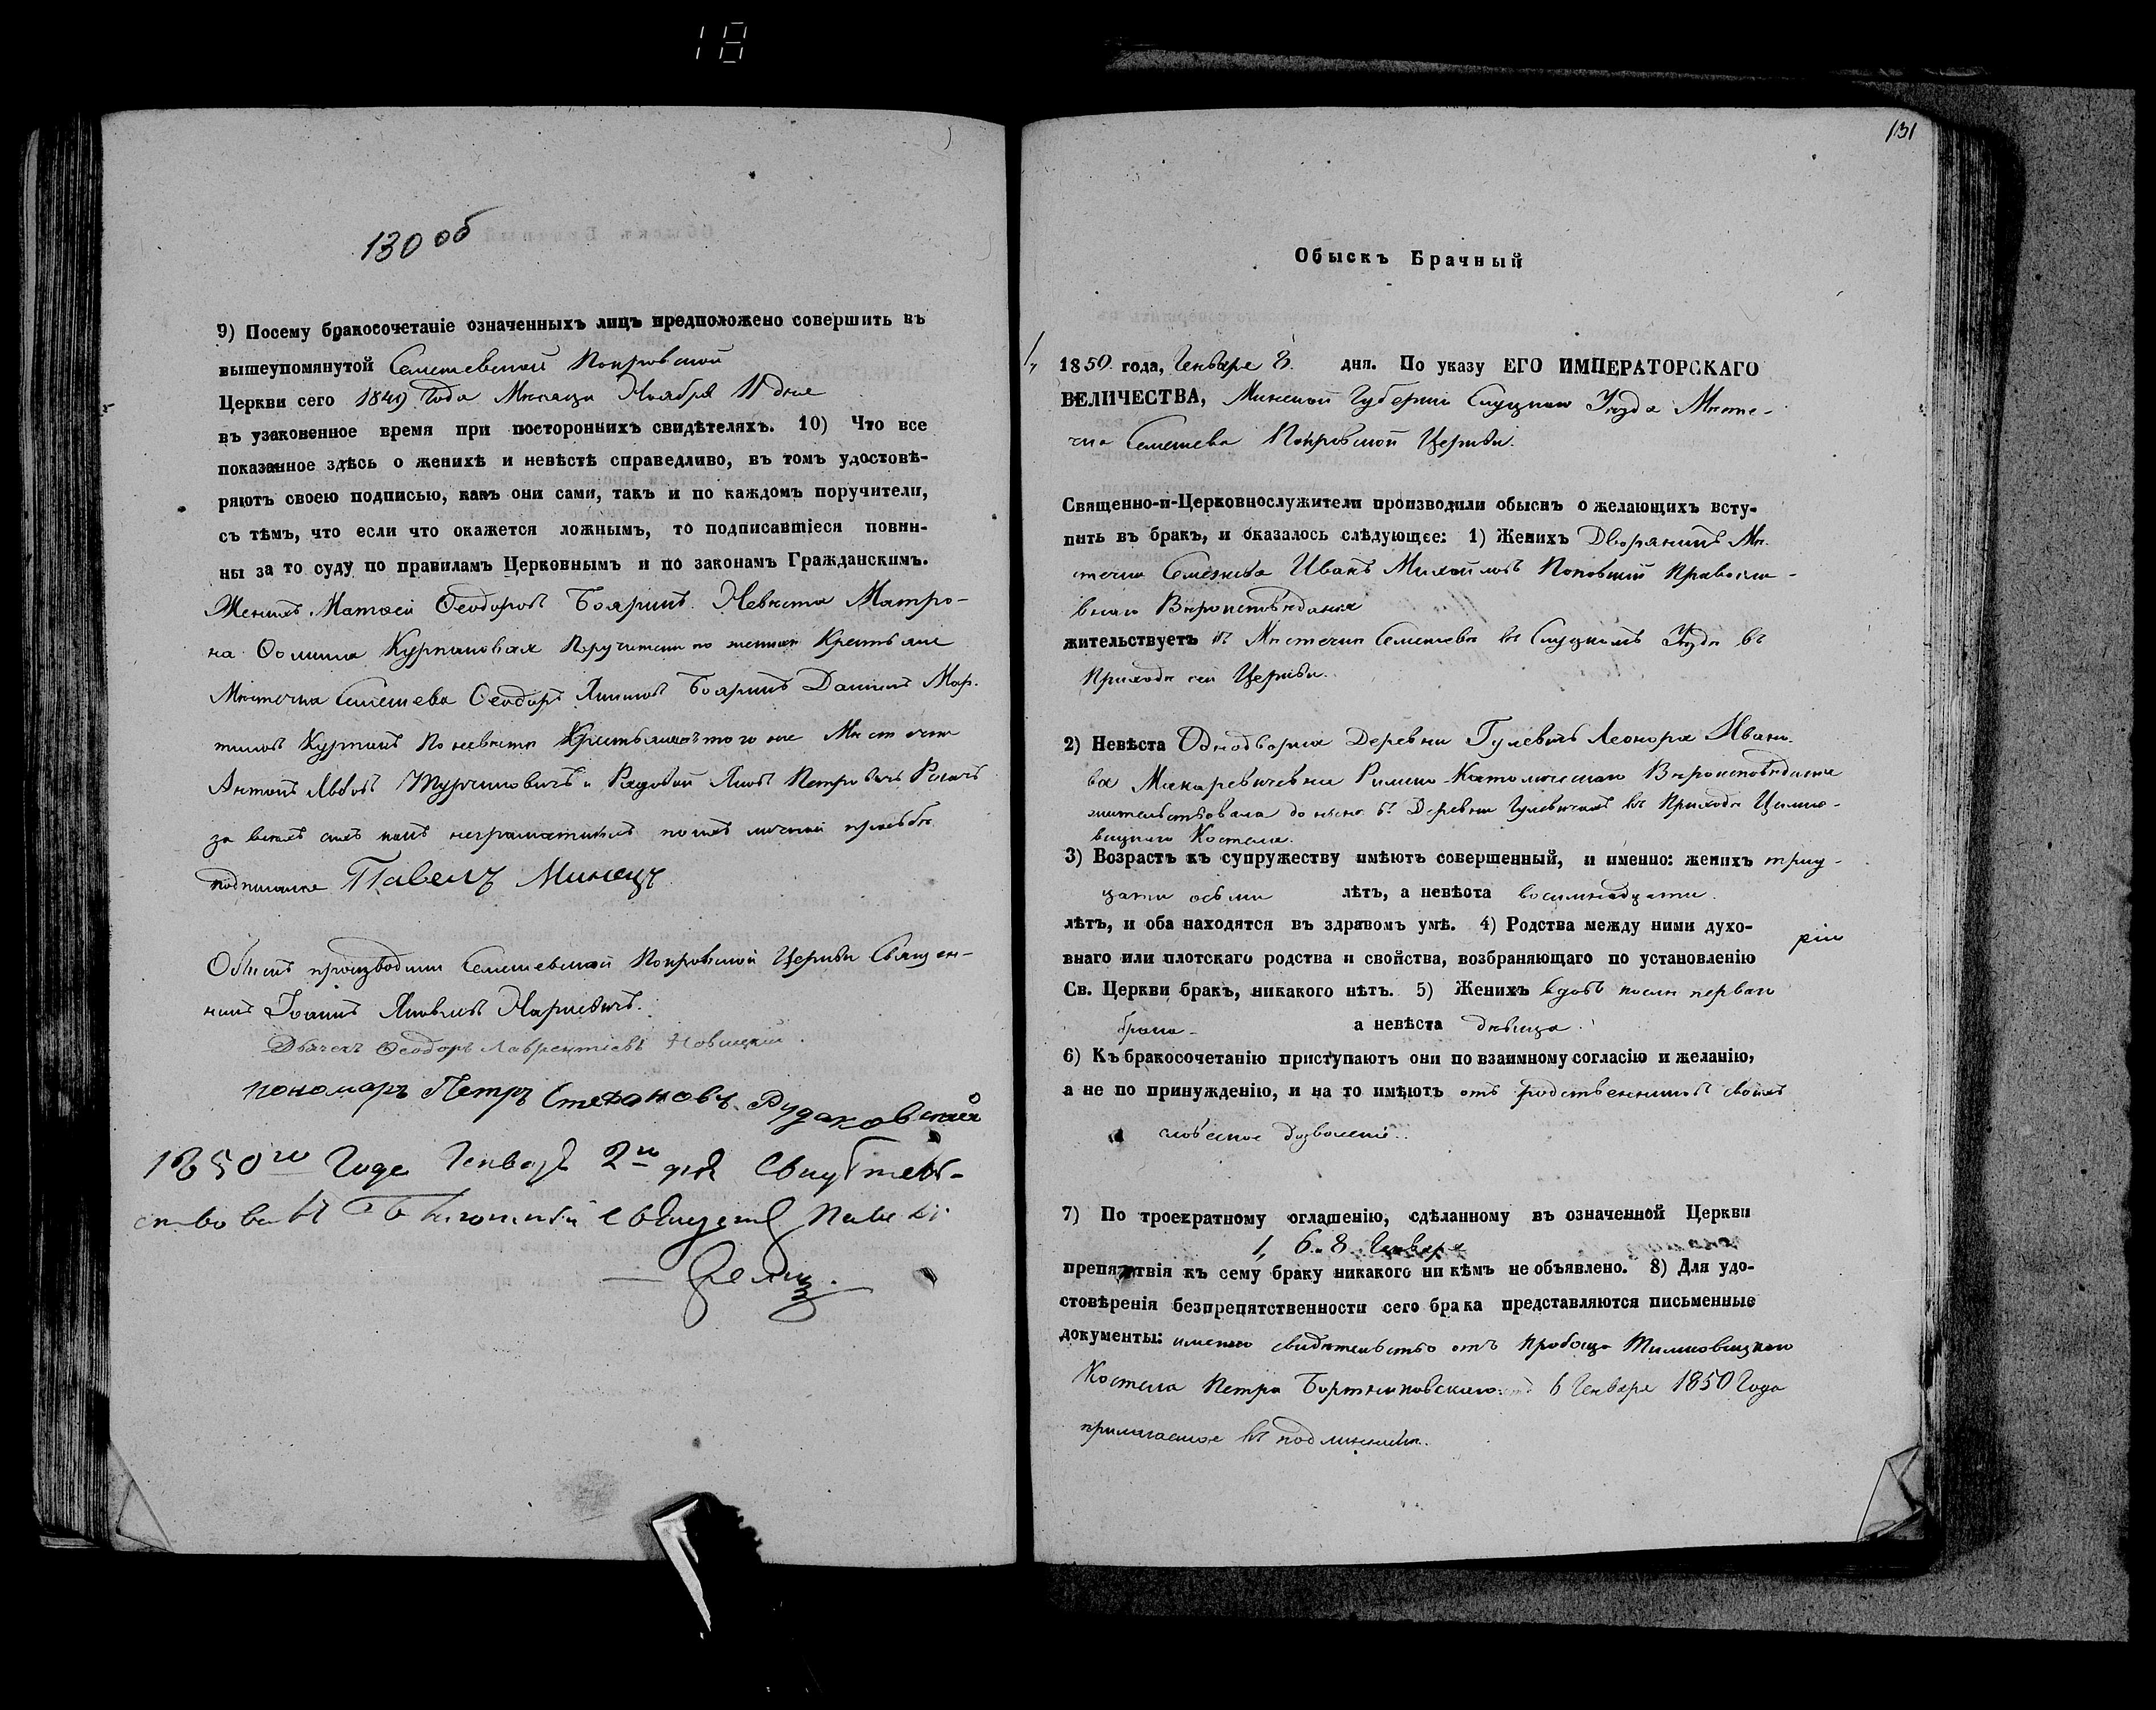 18
130 об
9) Посему бракосочетаніе означенныхъ лицъ предположено совершить въ
вышеупомянутой Семежевской Покровской
Церкви сего 1849 Года Месяца Ноября 11 дня
въ узаконенное время при постороннихъ свидѣтеляхъ. 10) Что все
показанное здѣсь о женихѣ и невѣстѣ справедливо, въ томъ удостовѣ-
ряютъ своею подписью, какъ они сами, такъ и по каждомъ поручители,
съ тѣмъ, что если что окажется ложнымъ, то подписавшіеся повин-
ны за то суду по правиламъ Церковнымъ и по законамъ Гражданскимъ.
Женихъ Матѳей Ѳеодоровъ Бояринъ. Невѣста Матро-
на Ѳомина Поручители по женихѣ Крестьяне
Мѣстечка Семежева Ѳеодоръ Бояринъ Даниилъ Мар-
по невѣстѣ Крестьяне того же Мѣстечка
Антонъ Турчиновичъ и Рядовой Яковъ Петровичъ
за всѣхъ ихъ какъ неграматныхъ по ихъ личной прозьбѣ
подписался Павелъ Минецъ
Обыскъ производили Семежевской Покровской Церкви Священ-
никъ Іоаннъ Яковлевъ
Дьячекъ Ѳеодоръ Лаврентіевъ Новицкій.
пономаръ Петръ Стефановъ Рудаковскій
1850го Года Генваря 2го дня Свидѣтель-
ствовалъ
131
Обыскъ Брачный
1, 1850 года, Генваря 8. дня. По указу ЕГО ИМПЕРАТОРСКАГО
ВЕЛИЧЕСТВА, Минской Губерніи Слуцкаго Уѣзда Мѣсте-
чка Семежева Покровской Церкви.
Священно-и-Церковнослужители производили обыскъ о желающихъ всту-
пить въ бракъ, и оказалось слѣдующее: 1) Женихъ Дворянинъ Мѣ-
стечка Семежева Иванъ Михайловъ Поповскій Православ-
внаго Вѣроисповѣданія
жительствуетъ въ Мѣстечкѣ Семежевѣ въ Слуцкомъ Уѣздѣ въ
Приходѣ сей Церкви.
2) Невѣста Однодворка Деревни Гулевичъ Леонора Ивано-
ва Макаревичевна Римско-Католическаго Вѣроисповѣданія
жительствовала до нынѣ въ Деревни Гулевичахъ въ Приходѣ Цимко-
вицкаго Костела.
3) Возрастъ къ супружеству имѣютъ совершенный, и именно: женихъ трид-
цати осьми лѣтъ, а невѣста восимнадцати.
лѣтъ, и оба находятся въ здравомъ умѣ. 4) Родства между ними духо-
внаго или плотскаго родства и свойства, возбраняющаго по установленію
Св. Церкви бракъ, никакого нѣтъ. 5) Женихъ вдовъ послѣ перваго
брака - а невѣста дѣвица.
6) Къ бракосочетанію приступаютъ они по взаимному согласію и желанію,
а не по принужденію, и на то имѣютъ отъ родственниковъ своихъ
словесное дозволеніе.
7) По троекратному оглашенію, сдѣланному въ означенной Церкви
1, 6 и 8 Генваря
препятствія къ сему браку никакого ни кѣмъ не объявлено. 8) Для удо-
стовѣренія безпрепятственности сего брака представляются письменные
документы: именно свидѣтельство отъ пробоща Тимковицкаго
Костела Петра Бортниковскаго отъ 6 Генваря 1850 Года
прилагаемое въ подлинникѣ.